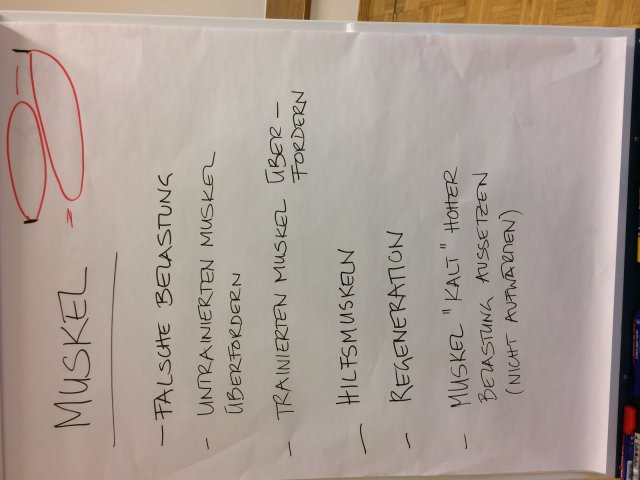 MUSKEL
- FALSCHE BELASTUNG
- UNTRAINIERTEN MUSKEL
ÜBERFORDERN
- TRAINIERTEN MUSKEL ÜBER-
FORDERN
- HILFSMUSKELN
- REGENERATION
- MUSKEL "KALT" HOHER
BELASTUNG AUSSETZEN
(NICHT AUFWÄRMEN)